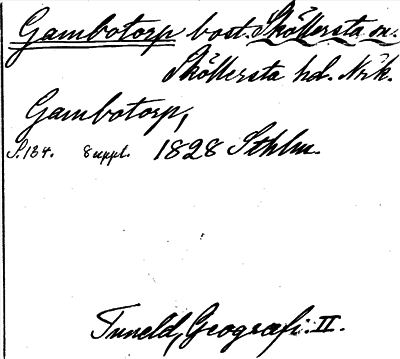 Gambotorp bost. Sköllersta sn.
Sköllersta hd. Nrk.
Gambotorp,
S. 134. 8 uppl. 1828 Sthlm.
Tuneld, Geografi. II.